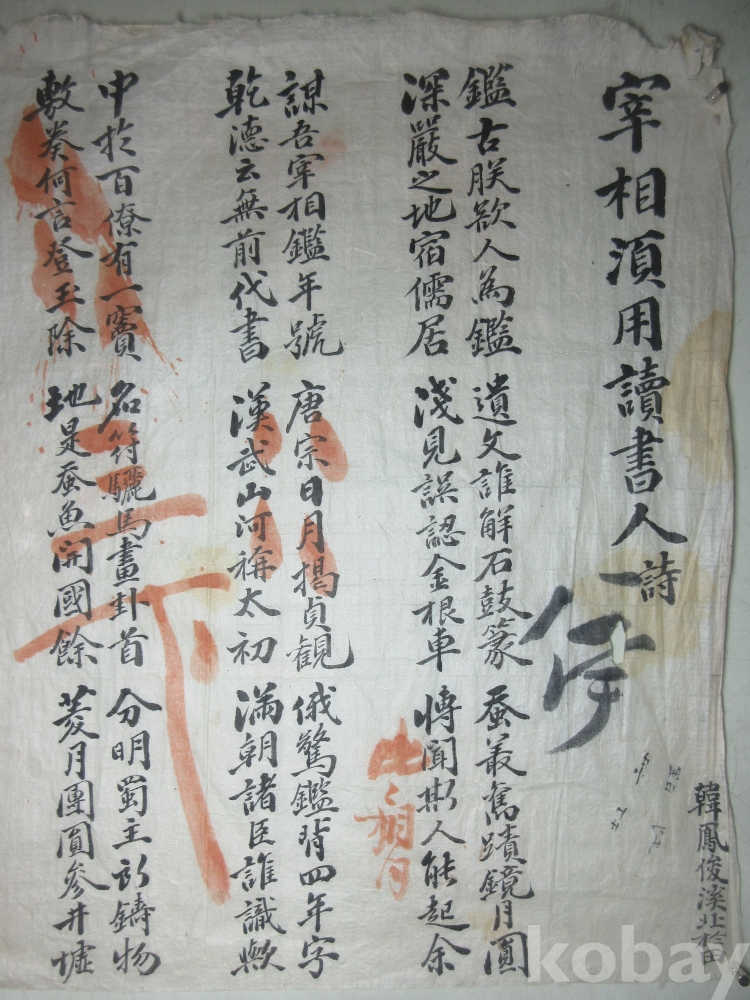 宰相須用讀書人詩
鑑古朕欲人為鑑 遺文誰解石鼓篆 蚕叢舊蹟鏡月圓
深嚴之地宿儒居 淺見誤認金根車 愽聞斯人能起余
謀吾宰相鑑年號 唐宗日月揭貞觀 俄驚鑑背四年字
乾德云無前代書 漢武山河稱太初 滿朝諸臣誰識歟
中於百僚有一竇 名符驪馬畫卦首 分明蜀主所鑄物
敷奏何言登玉除 地是蚕魚開國餘 菱月團圓參井墟
三下
韓鳳俊溪北
kobay